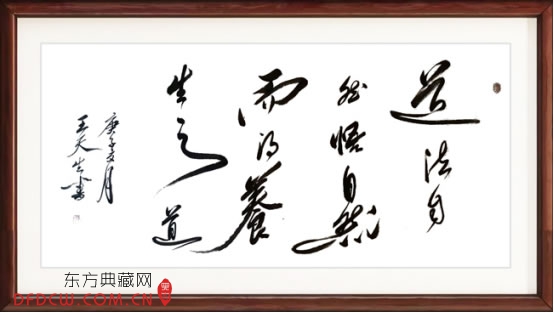 道法自
然悟自然
而得養
生之道
庚子夏月
王天生書
东方典藏网
DFDCW.COM.CN